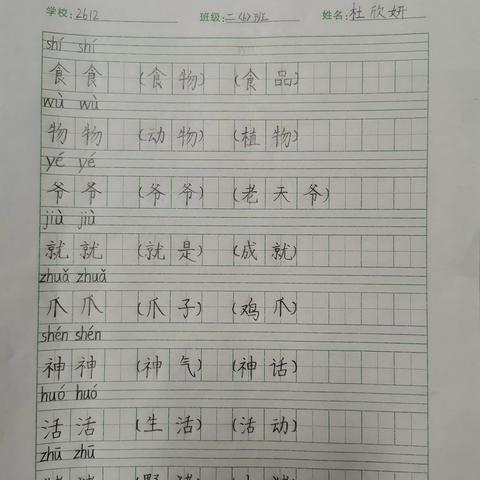 学校: 2612 班级: 二(6)班 姓名: 杜欣妍
shí shí
食食(食物)(食品)
wù wù
物物(动物)(植物)
yé yé
爷爷(爷爷)(老天爷)
jiù jiù
就就(就是)(成就)
zhuǎ zhuǎ
爪爪(爪子)(鸡爪)
shén shén
神神(神气)(神话)
huó huó
活活(生活)(活动)
zhū zhū